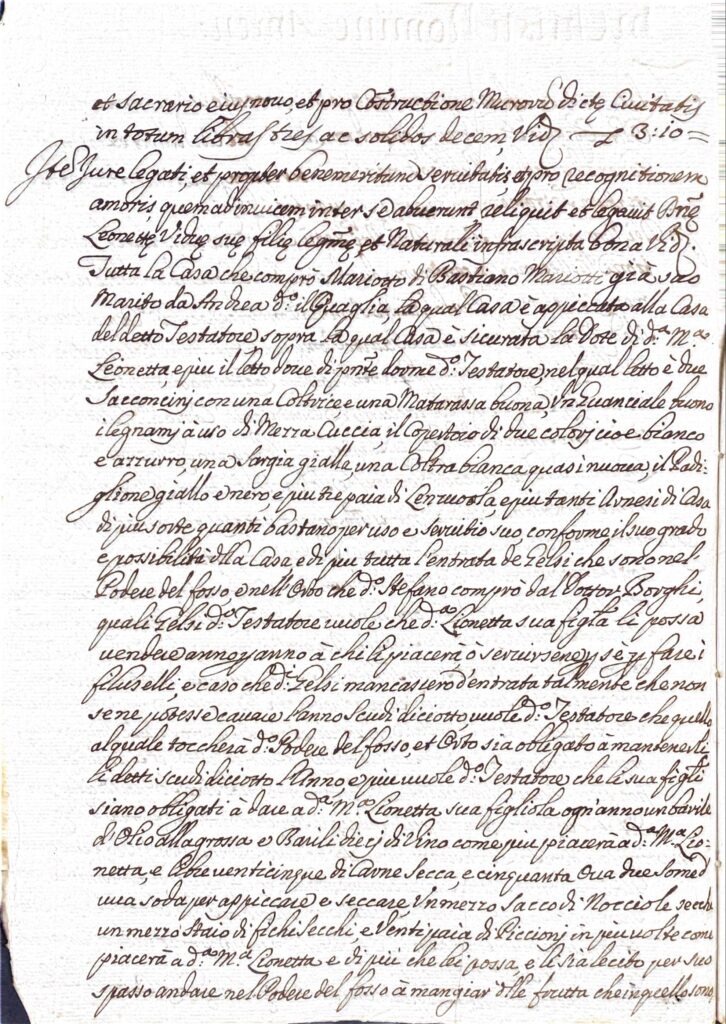 et sacrario eius novo, et pro Costructione Muror͂ dictę Civitatis
in totum libras tres ac solidos decem Vidz — £ 3:10 =
Ite͂ Jure legati, et propter benemeritum servitutis, et pro recognitionem
amoris quem ad invicem inter se abuerunt reliquit et legavit D͂nę
Leonettę Viduę suę filię legm͂ę et Naturali infrascripta bona Vidz.
Tutta la Casa che comprò Mariotto di Bastiano Mariotti già suo
Marito da Andrea d:º il Quaglia, la qual Casa è appiccata alla Casa
del detto Testatore sopra la qual Casa è sicurata la Dote di d:ª M:ª
Leonetta, e piu il letto dove di pn͂te dorme d:º Testatore, nel qual letto è due
Sacconcinj con una Coltrice, e una Matarassa buona Un Guanciale buono
i legnamj à uso di Mezza Cuccia, il Copertoio di due colorj cioè bianco
e azzurro, una Sargia gialla, una Coltra bianca quasi nuova, il Padi=
glione giallo e nero e piu tre paia di Lenzuola, e piu tanti Arnesi di Casa
di piu sorte quanti bastano per uso e servitio suo conforme il suo grado
e possibilità dlla Casa e di piu tutta l'entrata de Gelsi che sono nel
Podere del fosso, e nell'Orto che d:º Stefano comprò dal Dottor Borghi,
quali Gelsi d:º Testatore vuole che d:ª Lionetta sua figla li possa
vendere anno p anno à chi li piacerà ò servirsene p sè p fare i
filuselli, e caso che d:i Gelsi mancassero d'entrata talmente che non
se ne potesse cavare l'anno scudi diciotto vuole d:º Testatore che quello
al quale toccherà d:º Podere del fosso, et Orto sia obligato à mantenerli
li detti scudi diciotto l'Anno, e piu vuole d:º Testatore che li sua figli
siano obligati à dare a d:ª M:ª Lionetta sua figliola ogn'anno un barile
d'Olio alla grossa e Barili diecj di Vino come piu piacerà a d:ª M:ª Lio=
netta, e libre venticinque di Carne Secca, e cinquanta Ova due Some d
uva soda per appiccare e seccare Un mezzo Sacco di Nocciole secche
un mezzo Staio di fichi secchi e Venti paia di Piccionj in piu volte come
piacerà a d:ª M:ª Lionetta e di piu che lei possa, e li sia lecito per suo
spasso andare nel Podere del fosso à mangiar dlle frutta che in quello sono